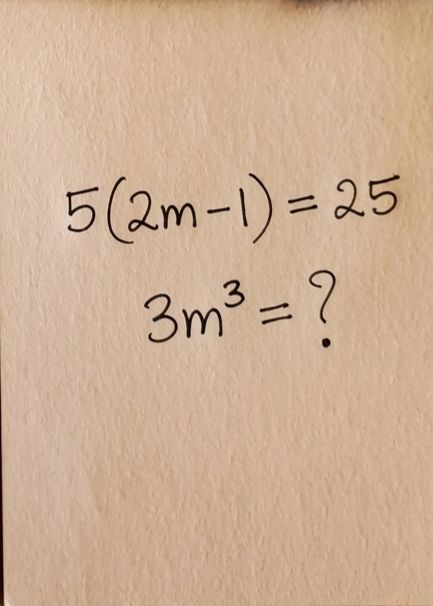 5(2m-1) = 25
3m³ = ?